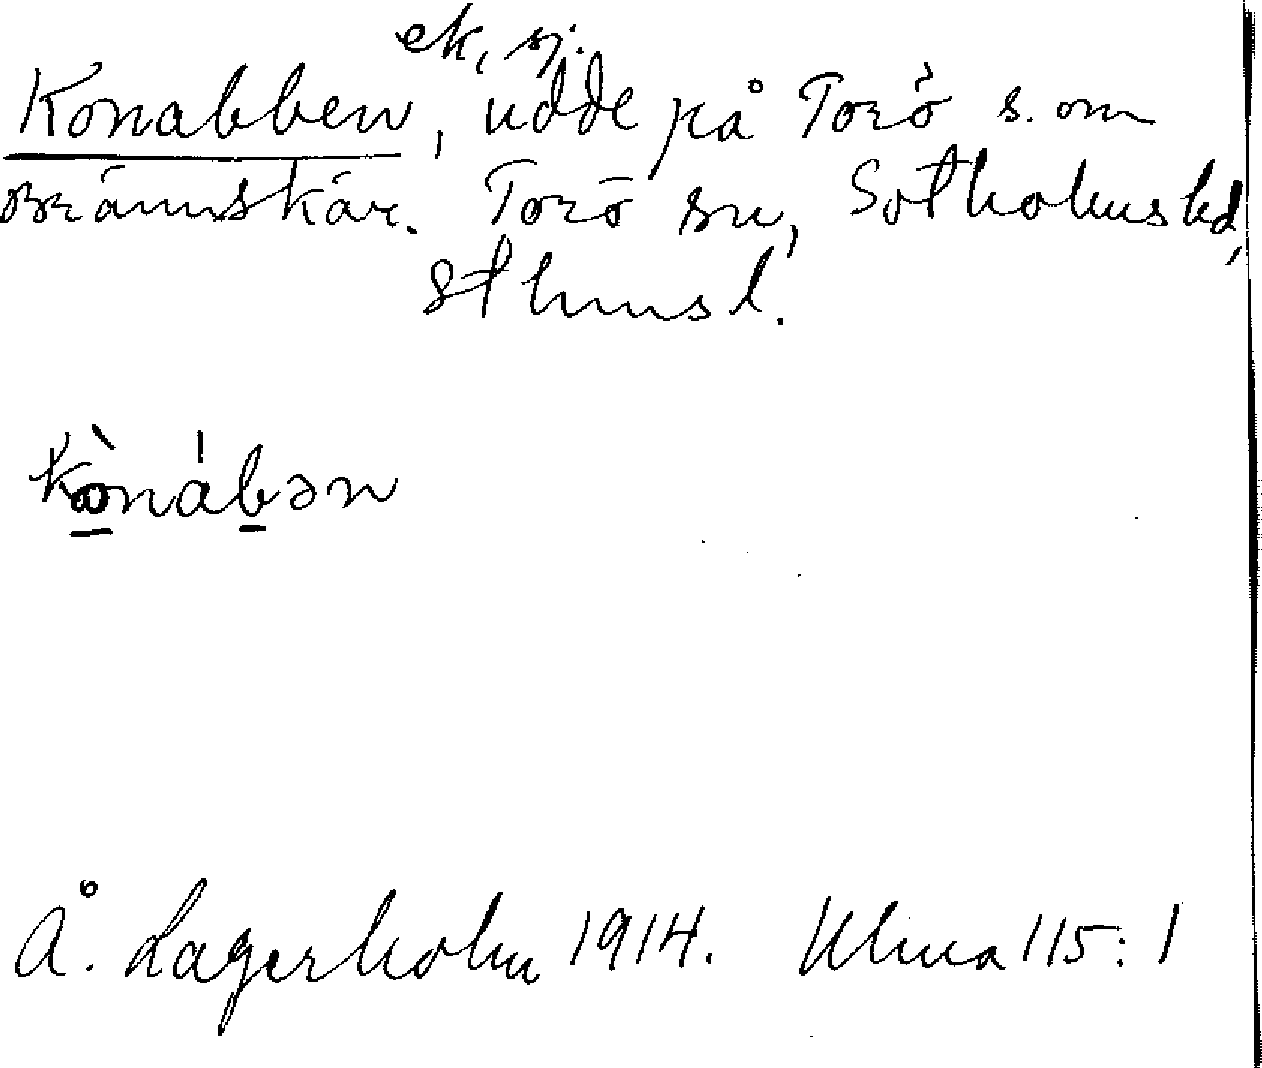 ek, sj.
Konabben, udde på Torö s. om
Brännskär. Torö sn, Sotholms hd,
Sthms l.
Kònábən
Å. Lagerholm 1914. Uhma 115:1